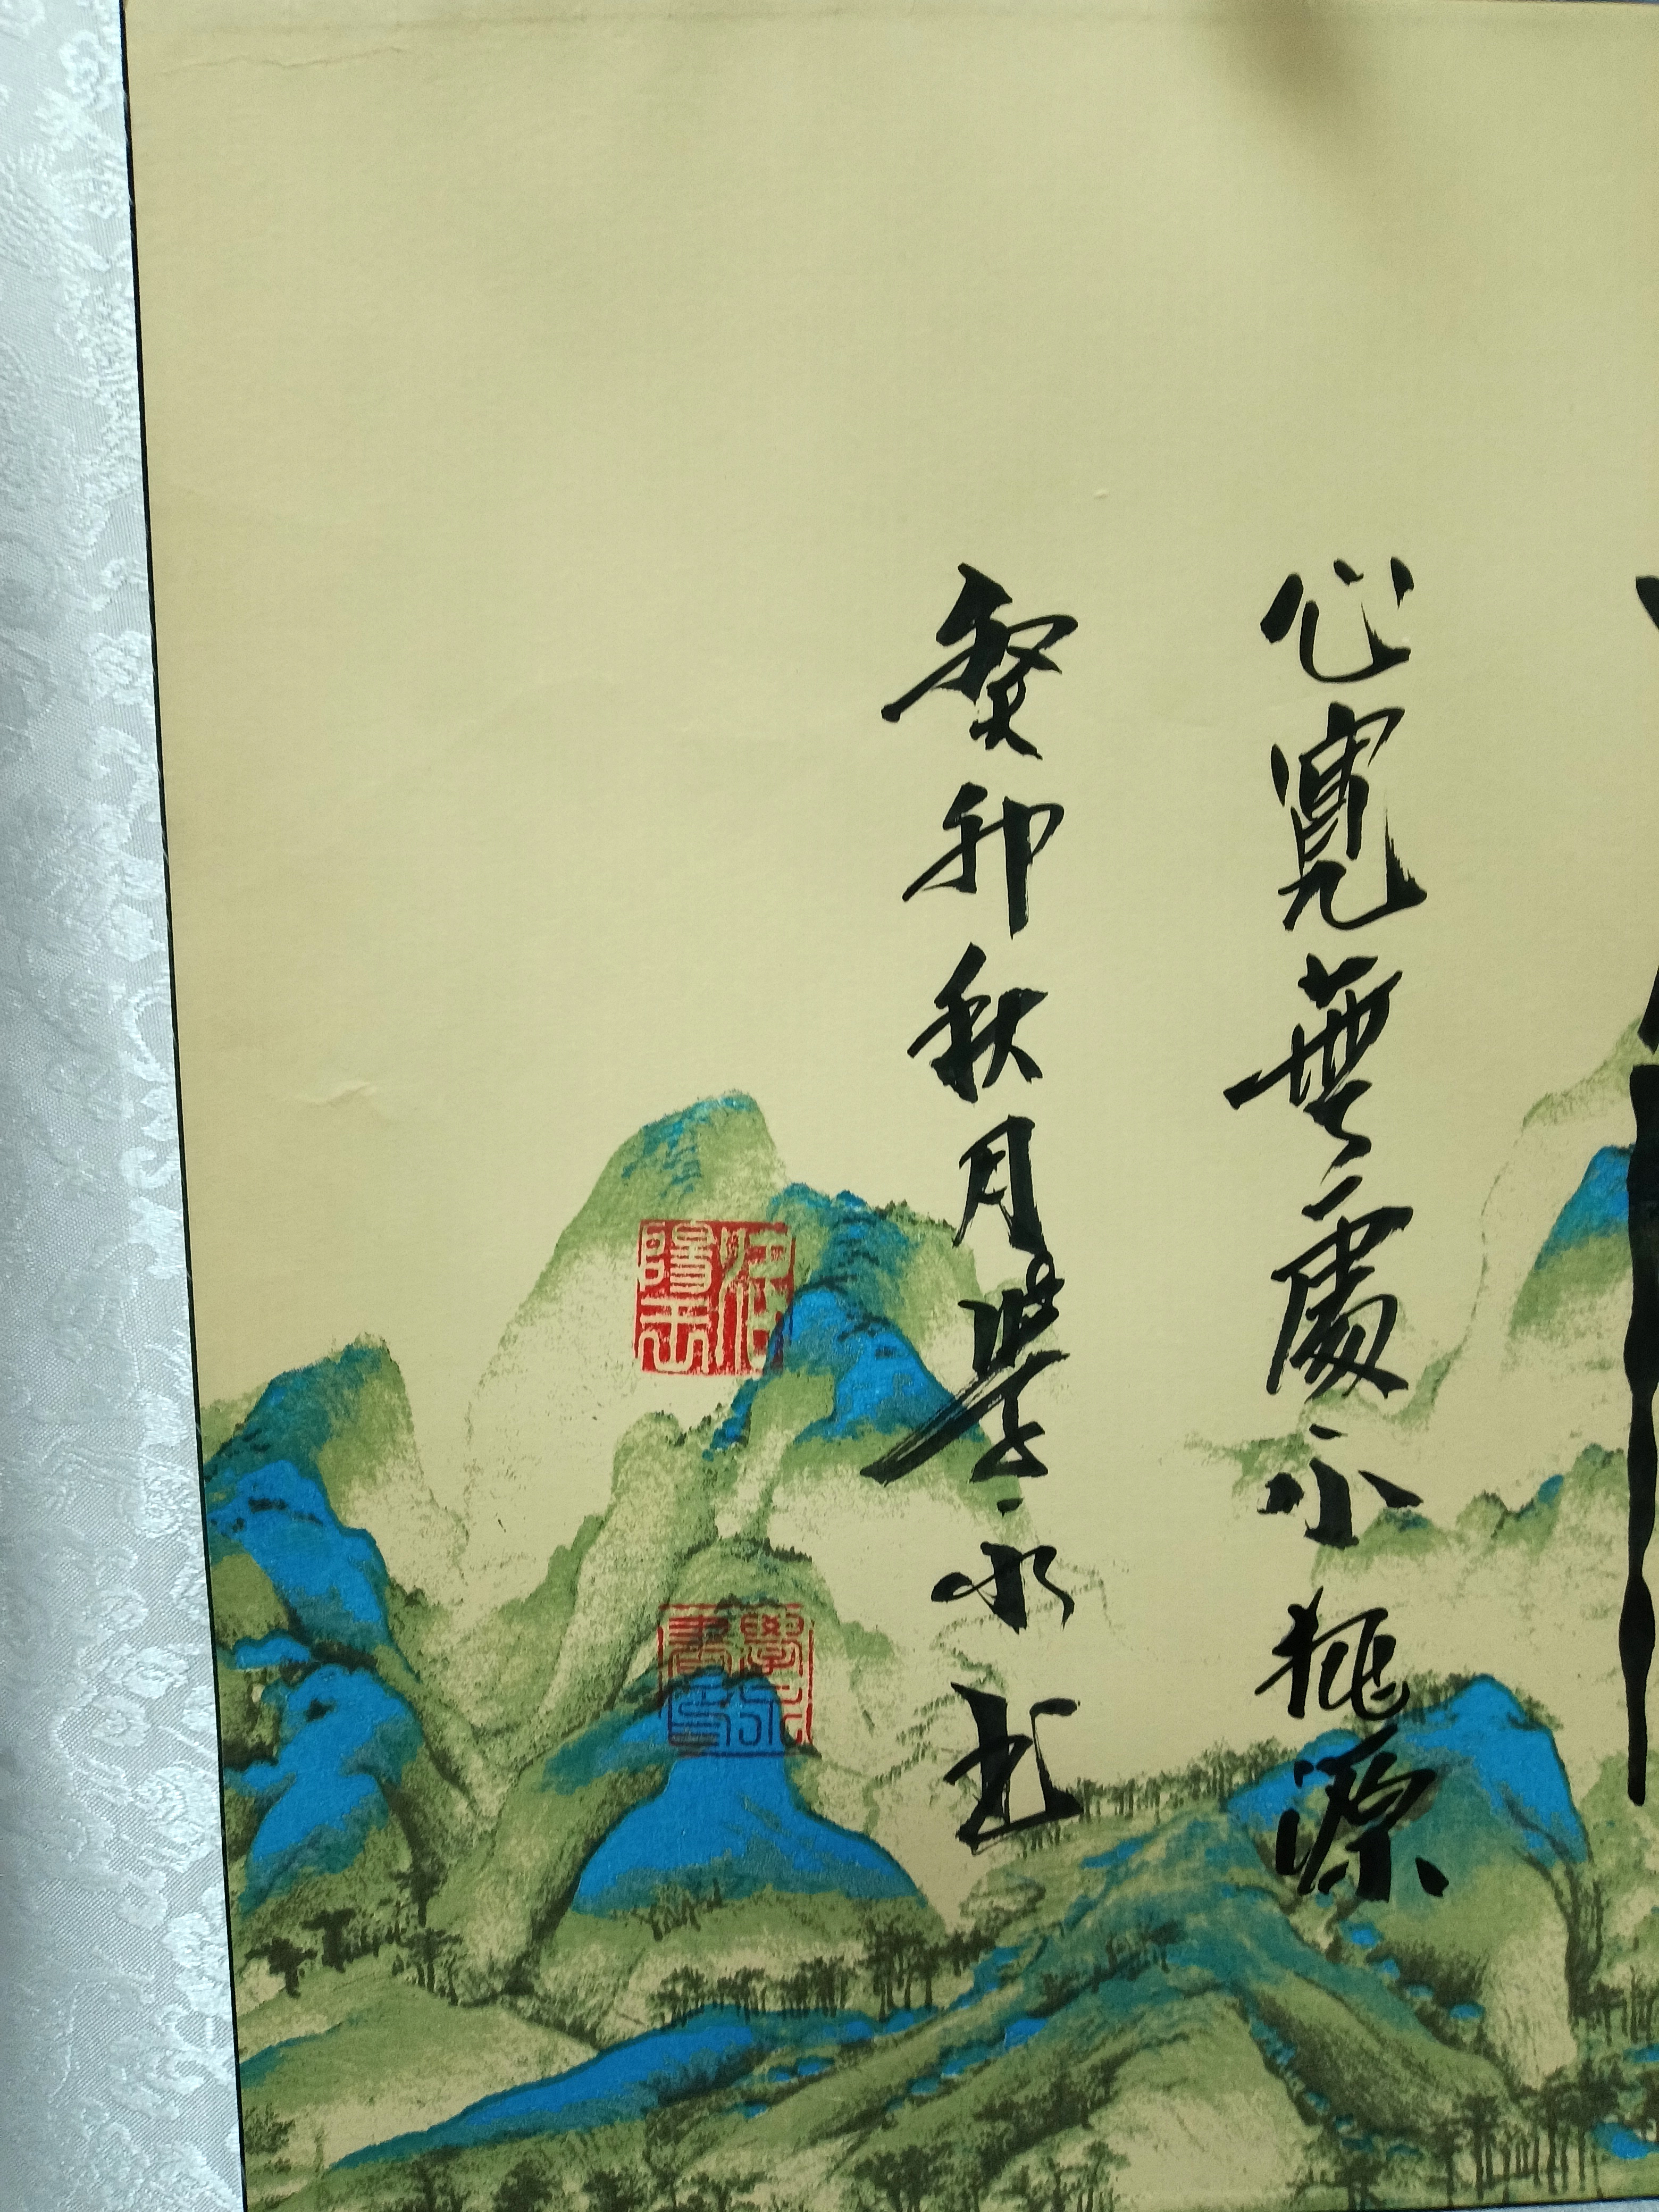 心寬無處不桃源
癸卯秋月學永書
學永
書印